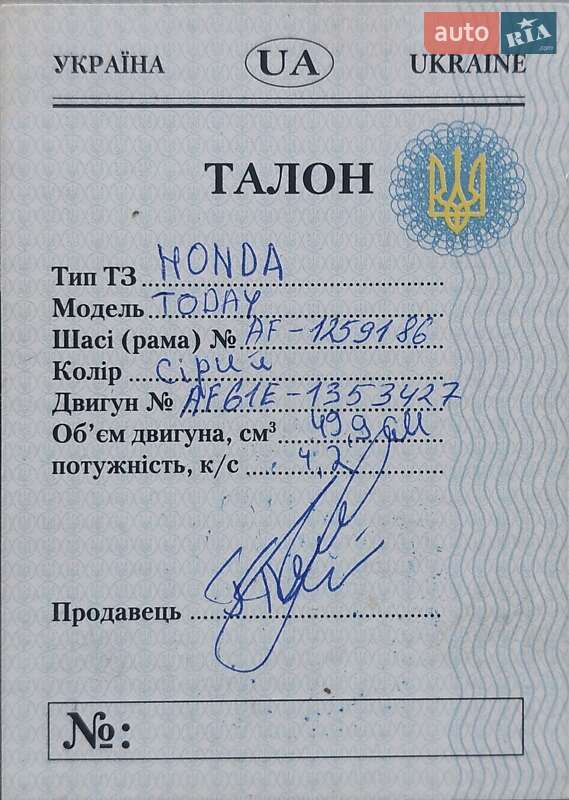 auto RIA.com
УКРАЇНА UA UKRAINE
ТАЛОН
Тип ТЗ HONDA
Модель TODAY
Шасі (рама) № AF-1259186
Колір сірий
Двигун № AF61E-1353427
Об’єм двигуна, см³ 49,9 см
потужність, к/с 4,2
Продавець
№: